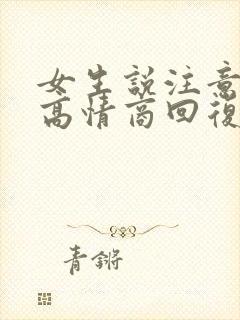 女生說注意
高情商回復
青鏘